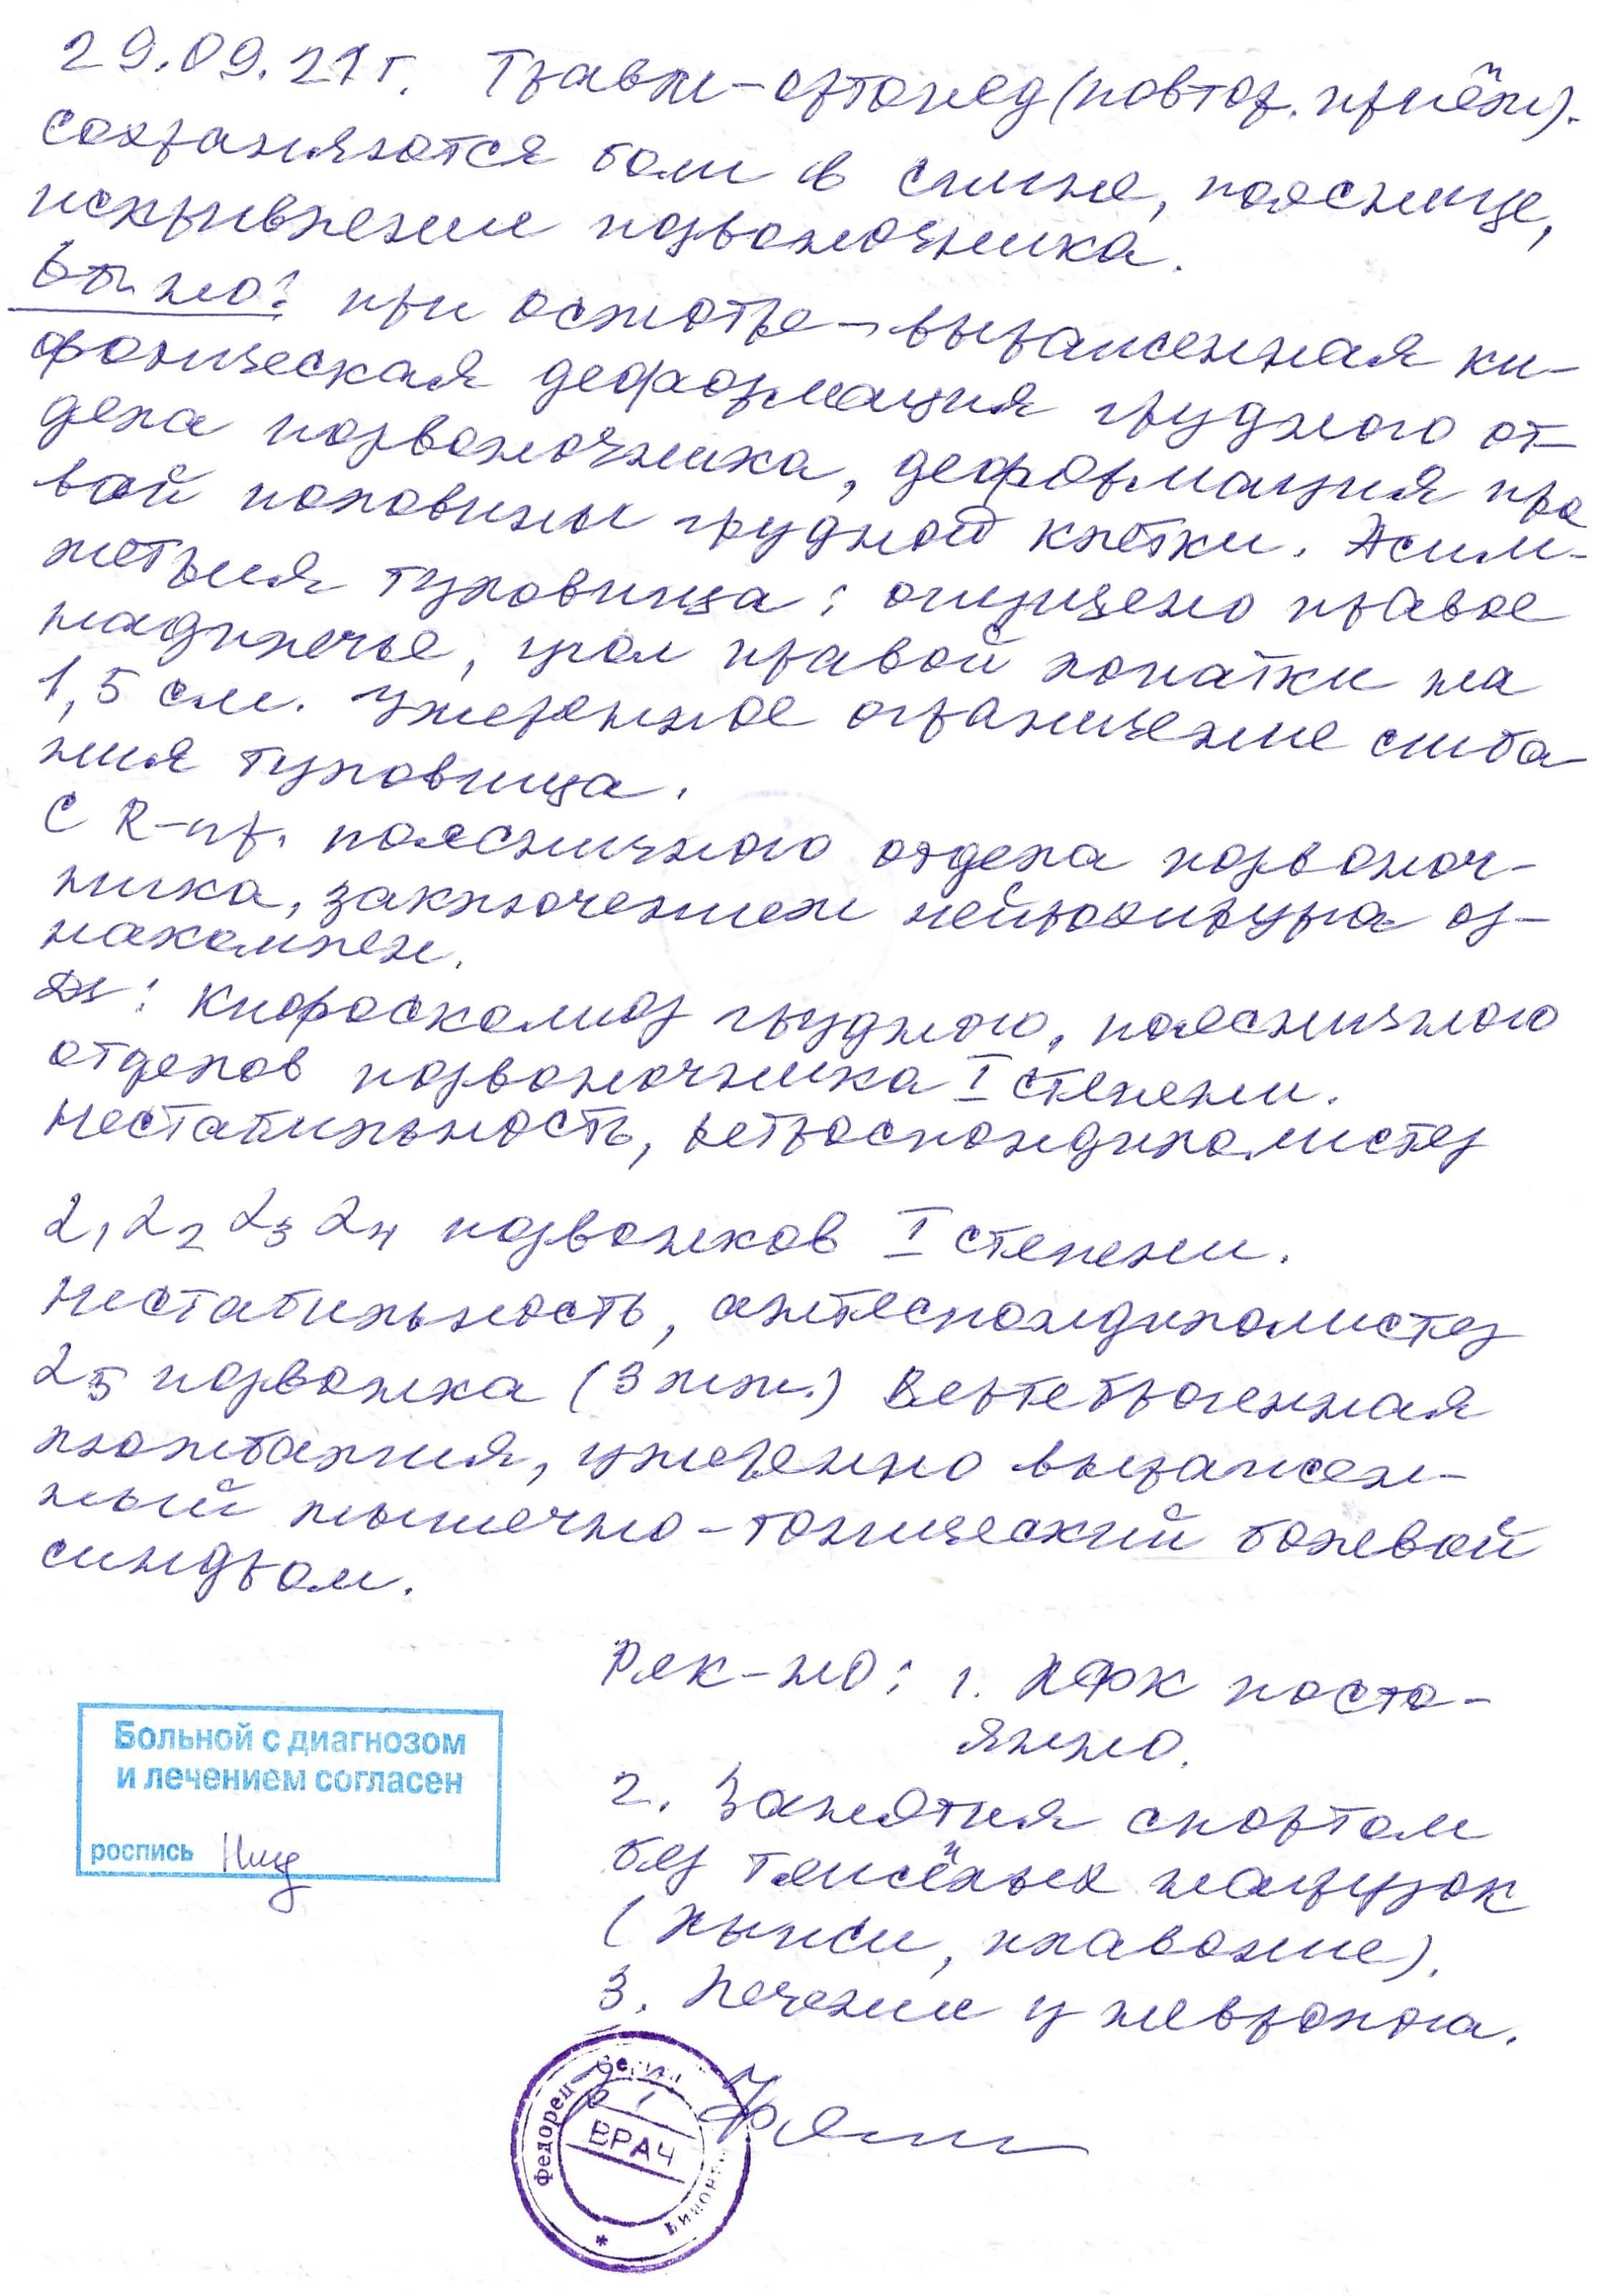 29.09.21 г. Травм-ортопед (повтор. приём).
Сохраняются боли в спине, пояснице,
искривление позвоночника.
при осмотре - выраженная ки-
фоническая деформация грудного от-
дела позвоночника, деформация пра
вой половины грудной клетки. Асим-
метрия туловища: опущено правое
надплечье, угол правой лопатки на
1,5 см. Умеренное ограничение сгиба
ния туловища.
С R-гр. поясничного отдела позвоноч-
ника, заключением нейрохирурга оз-
накомлен.
Ds: Кифосколиоз грудного, поясничного
отделов позвоночника I степени.
Нестабильность, ретроспондилолистез
L1 L2 L3 L4 позвонков I степени.
Нестабильность, антеспондилолистез
L5 позвонка (3 мм.) Вертеброгенная
люмбалгия, умеренно выражен-
ный мышечно-тонический болевой
синдром.
Рек-но: 1. ЛФК посто-
янно.
2. Занятия спортом
без тяжёлых нагрузок
(лыжи, плавание).
3. Лечение у невролога.
Больной с диагнозом
и лечением согласен
роспись
Федорец
ВРАЧ